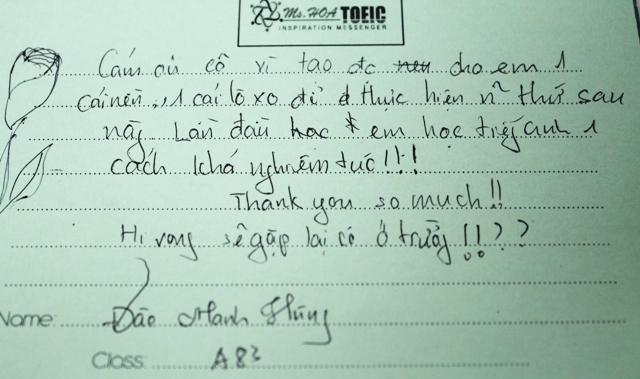 Ms. HOA TOEIC
INSPIRATION MESSENGER
Cám ơn cô vì tạo đc cho em 1
cái nền, 1 cái lò xo để thực hiện n~ thứ sau
này. Lần đầu học em học tiếng anh 1
cách khá nghiêm túc!!!
Thank you so much!!
Hi vọng sẽ gặp lại cô ở trường!!??
Name: Đào Mạnh Hùng
Class: A83